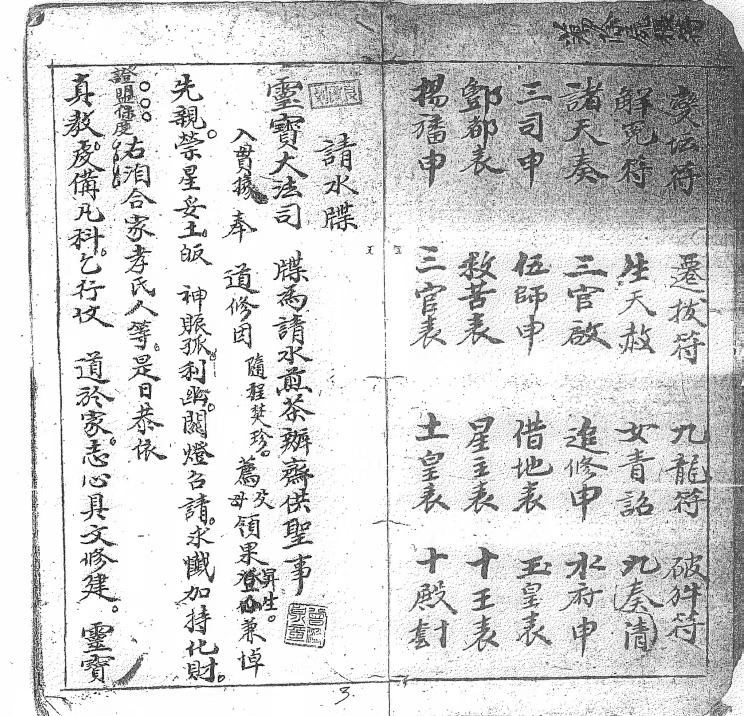 變坛符 遷拔符 九龍符 破狱符
解冤符 生天赦 女青詔 九奏清
諸天奏 三官啟 追修申 水府申
三司申 伍師申 借地表 玉皇表
酆都表 救苦表 星主表 十王表
楊旛申 三官表 土皇表 十殿封
請水牒
靈寶大法司 牒為請水煎茶辦齋供聖事
入貫據 奉 道修因 隨程焚珍。薦 父母 領果 昇生。兼悼
先親。榮星妥土。皈 神賑孤利幽。關燈召請。求懺加持化財。
右洎合家孝氏人等。是日恭依
證盟保度
真教。虔備凡科。乞行攻 道於家。志心具文修建。靈寶
3